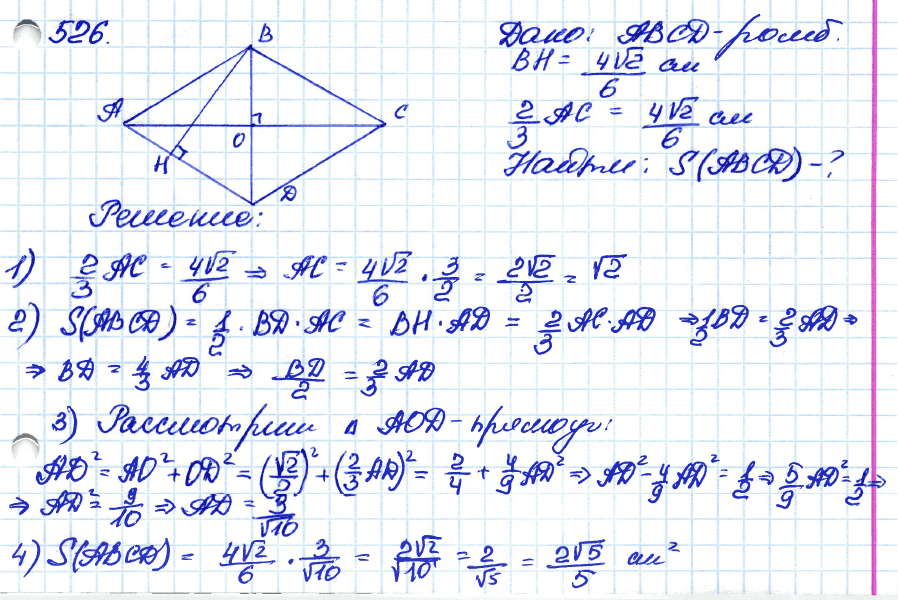 526.
B
A
C
O
H
D
Дано: ABCD - ромб.
BH = 4√2/6 см
2/3 AC = 4√2/6 см
Найти: S(ABCD) - ?
Решение:
1) 2/3 AC = 4√2/6 ⇒ AC = 4√2/6 · 3/2 = 2√2/2 = √2
2) S(ABCD) = 1/2 · BD · AC = BH · AD = 2/3 AC · AD ⇒ 1/2 BD = 2/3 AD ⇒
⇒ BD = 4/3 AD ⇒ BD/2 = 2/3 AD
3) Рассмотрим △ AOD - прямоуг:
AD² = AO² + OD² = (√2/2)² + (2/3 AD)² = 2/4 + 4/9 AD² ⇒ AD² - 4/9 AD² = 1/2 ⇒ 5/9 AD² = 1/2 ⇒
⇒ AD² = 9/10 ⇒ AD = 3/√10
4) S(ABCD) = 4√2/6 · 3/√10 = 2√2/√10 = 2/√5 = 2√5/5 см²